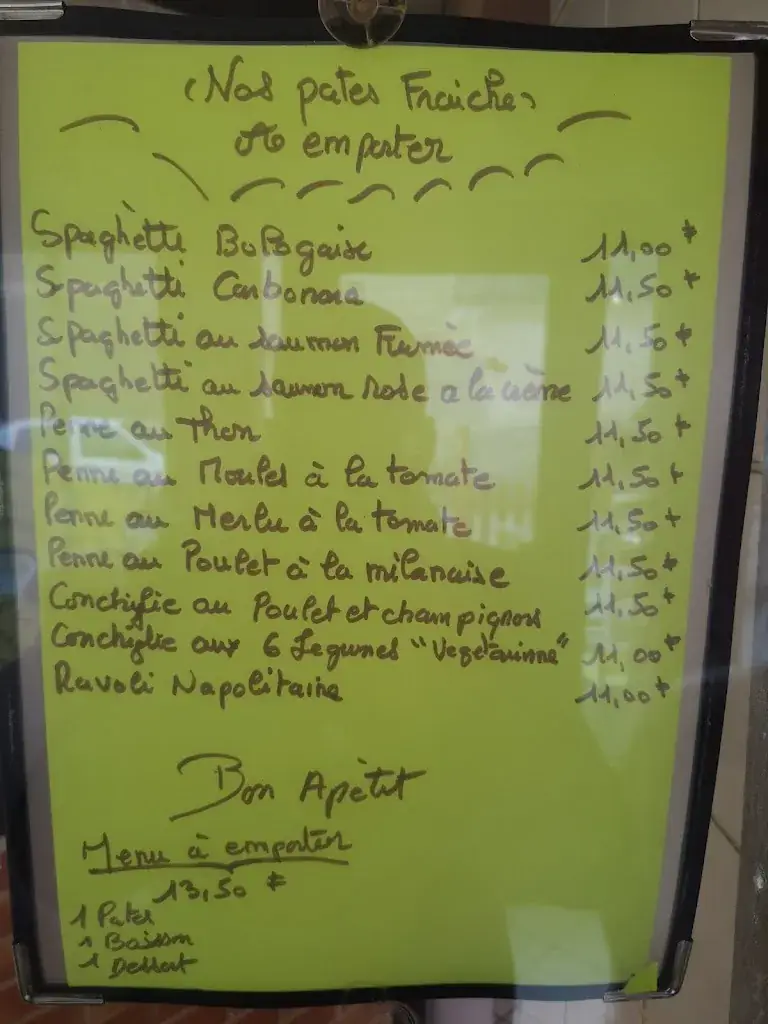 Nos pates Fraiches
A emporter
Spaghètti Bolognaise 11,00 €
Spaghetti Carbonara 11,50 €
Spaghetti au saumon Fumée 11,50 €
Spaghetti au saumon rose a la crème 11,50 €
Penne au Thon 11,50 €
Penne au Moules à la tomate 11,50 €
Penne au Merlu à la tomate 11,50 €
Penne au Poulet à la milanaise 11,50 €
Conchiglie au Poulet et champignons 11,50 €
Conchiglie aux 6 Legumes "Vegetarinne" 11,00 €
Ravoli Napolitaine 11,00 €
Bon Apètit
Menu à emporter
13,50 €
1 Pates
1 Boisson
1 Dessert